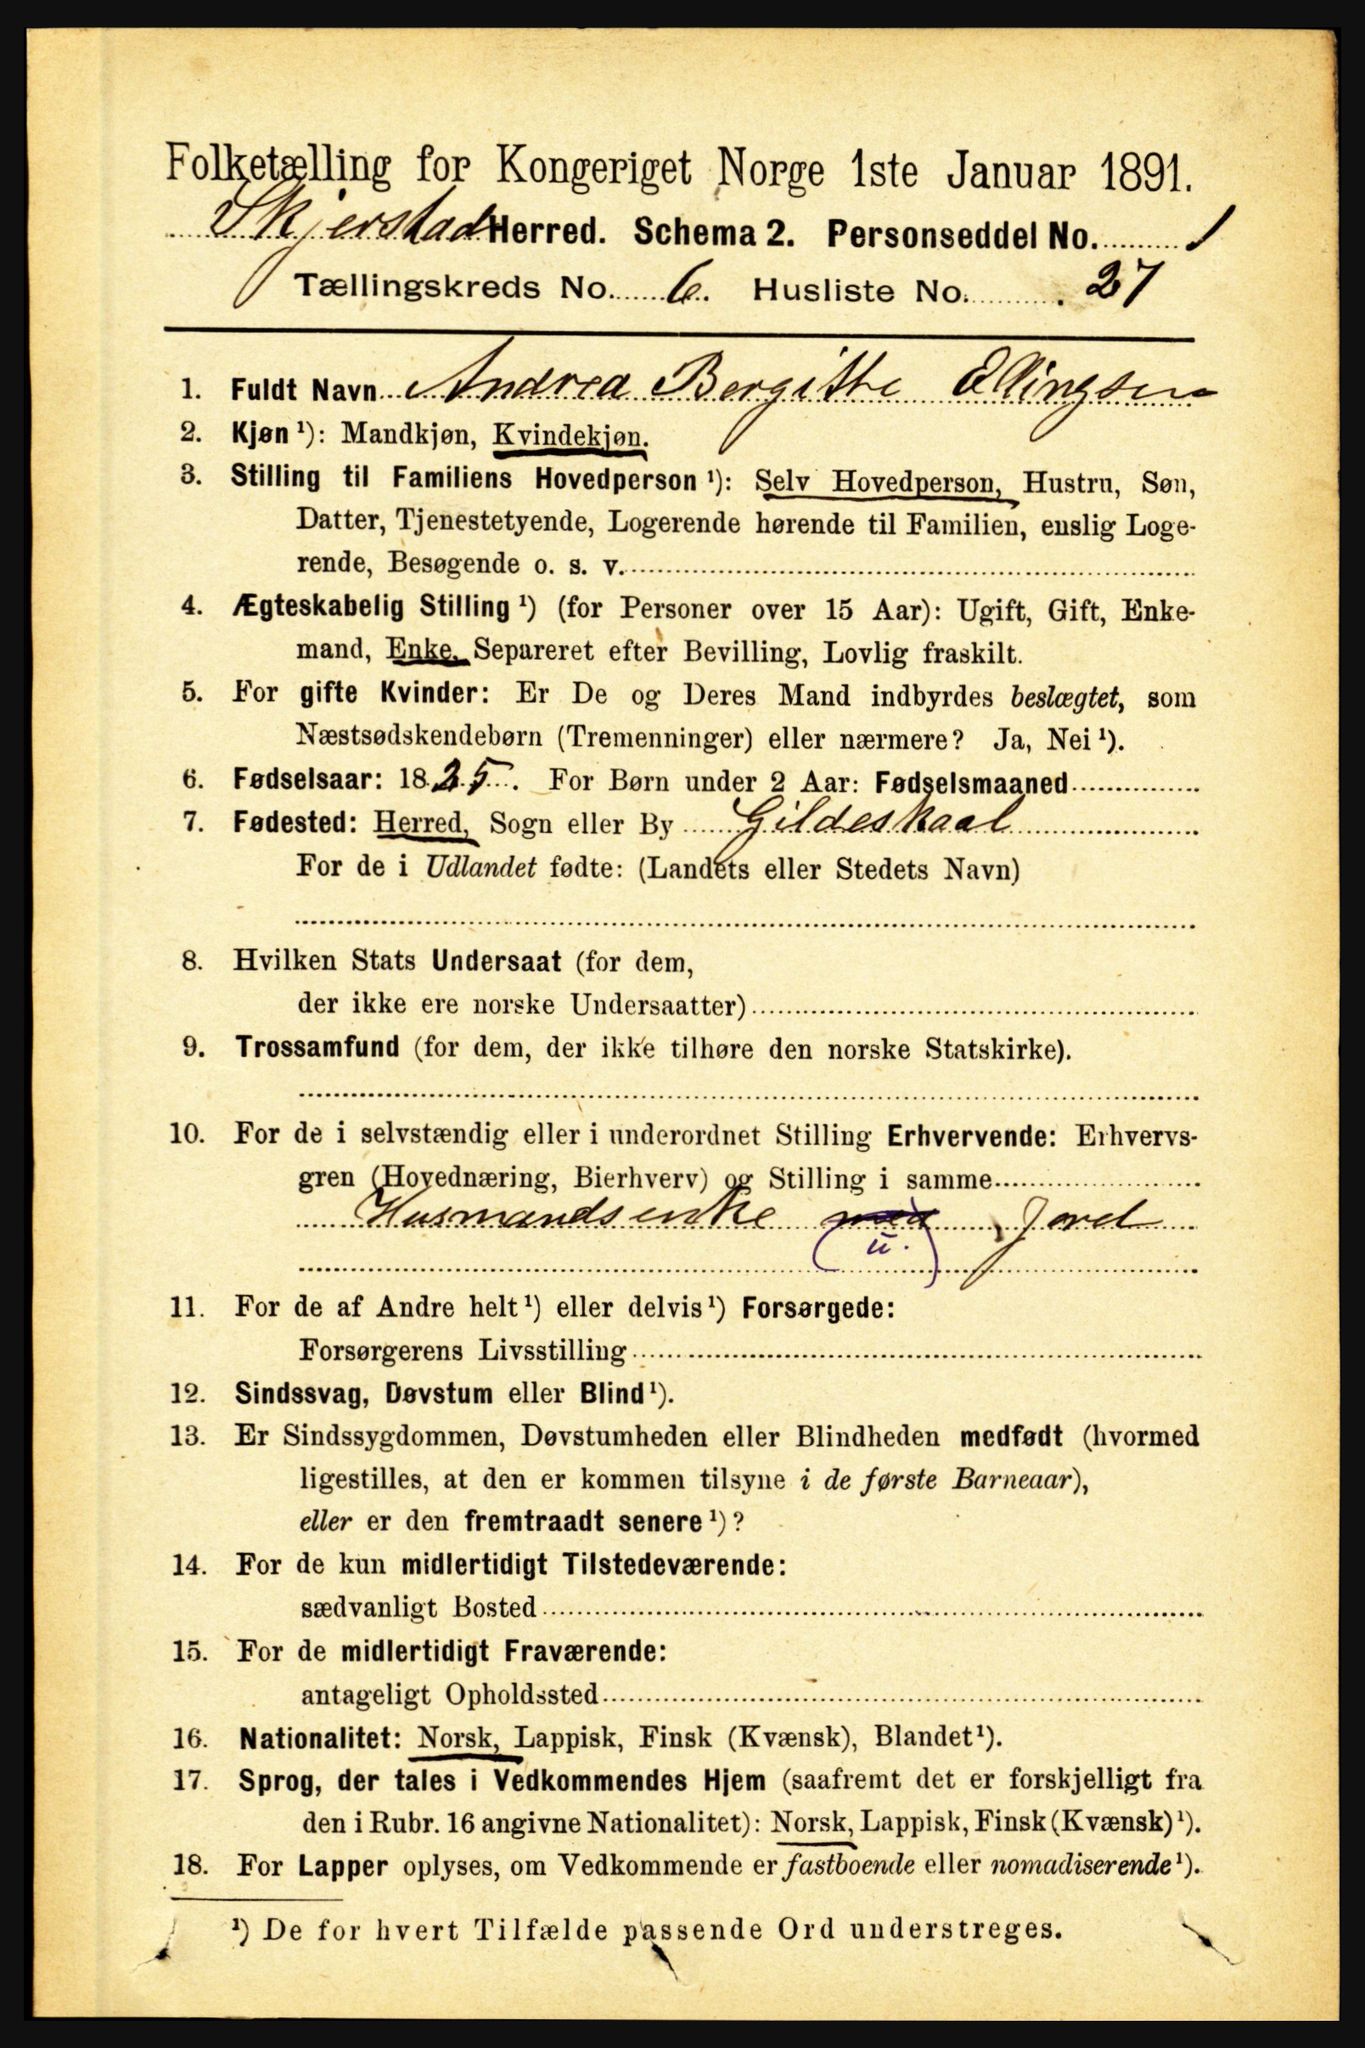 Folketælling for Kongeriget Norge 1ste Januar 1891.
Skjerstad Herred. Schema 2. Personseddel No. 1
Tællingskreds No. 6. Husliste No. 27
1. Fuldt Navn Andrea Bergitte Ellingsen
2. Kjøn¹): Mandkjøn, Kvindekjøn.
3. Stilling til Familiens Hovedperson¹): Selv Hovedperson, Hustru, Søn,
Datter, Tjenestetyende, Logerende hørende til Familien, enslig Loge-
rende, Besøgende o. s. v.
4. Ægteskabelig Stilling¹) (for Personer over 15 Aar): Ugift, Gift, Enke-
mand, Enke, Separeret efter Bevilling, Lovlig fraskilt.
5. For gifte Kvinder: Er De og Deres Mand indbyrdes beslægtet, som
Næstsødskendebørn (Tremenninger) eller nærmere? Ja, Nei¹).
6. Fødselsaar: 1825. For Børn under 2 Aar: Fødselsmaaned
7. Fødested: Herred, Sogn eller By Gildeskaal
For de i Udlandet fødte: (Landets eller Stedets Navn)
8. Hvilken Stats Undersaat (for dem,
der ikke ere norske Undersaatter)
9. Trossamfund (for dem, der ikke tilhøre den norske Statskirke).
10. For de i selvstændig eller i underordnet Stilling Erhvervende: Erhvervs-
gren (Hovednæring, Bierhverv) og Stilling i samme
Husmandsenke med Jord
(u.)
11. For de af Andre helt¹) eller delvis¹) Forsørgede:
Forsørgerens Livsstilling
12. Sindssvag, Døvstum eller Blind¹).
13. Er Sindssygdommen, Døvstumheden eller Blindheden medfødt (hvormed
ligestilles, at den er kommen tilsyne i de første Barneaar),
eller er den fremtraadt senere¹)?
14. For de kun midlertidigt Tilstedeværende:
sædvanligt Bosted
15. For de midlertidigt Fraværende:
antageligt Opholdssted
16. Nationalitet: Norsk, Lappisk, Finsk (Kvænsk), Blandet¹).
17. Sprog, der tales i Vedkommendes Hjem (saafremt det er forskjelligt fra
den i Rubr. 16 angivne Nationalitet): Norsk, Lappisk, Finsk (Kvænsk)¹).
18. For Lapper oplyses, om Vedkommende er fastboende eller nomadiserende¹).
¹) De for hvert Tilfælde passende Ord understreges.